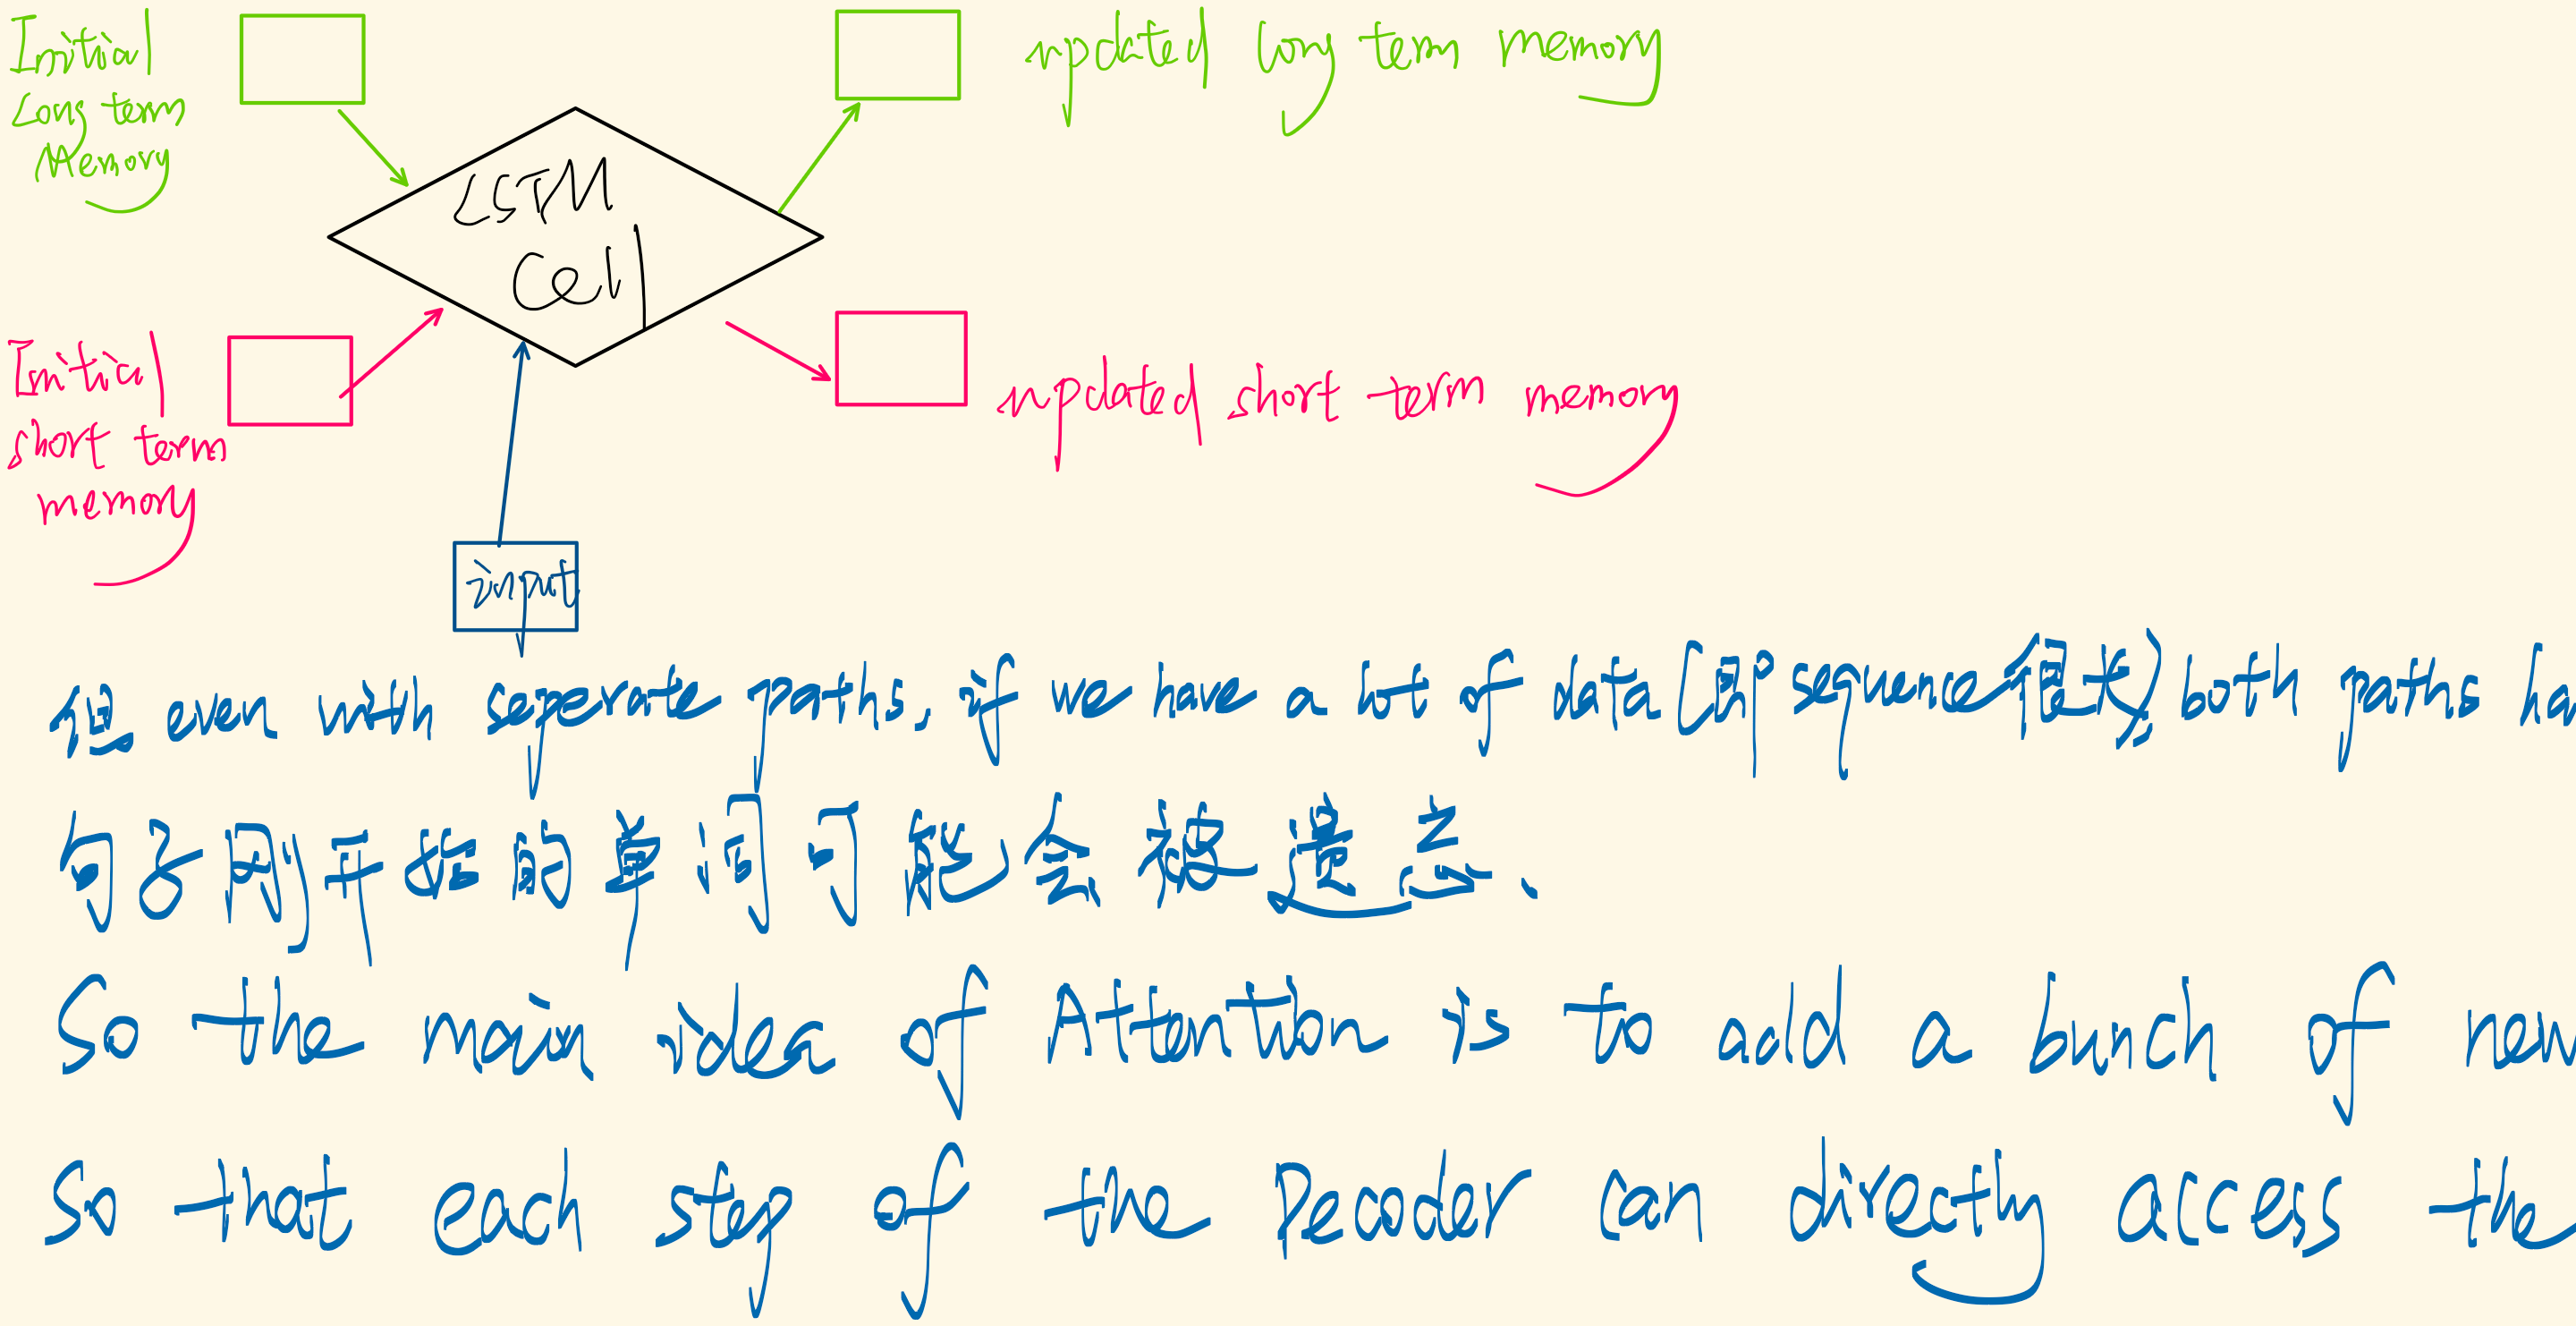 Initial
Long term
Memory
updated long term memory
LSTM
Cell
Initial
short term
memory
updated short term memory
input
但 even with seperate paths, if we have a lot of data (即 sequence 很长) both paths ha
句子刚开始的单词可能会被遗忘、
So the main idea of Attention is to add a bunch of new
So that each step of the Decoder can directly access the